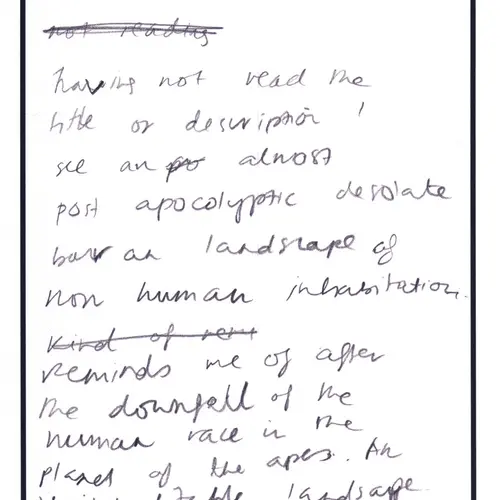 not reading
having not read the
title or description I
see an po almost
post apocolyptic desolate
landscape of
non human inhabitation.
Kind of
Reminds me of after
the downfall of the
human race in the
planet of the apes. An
landscape